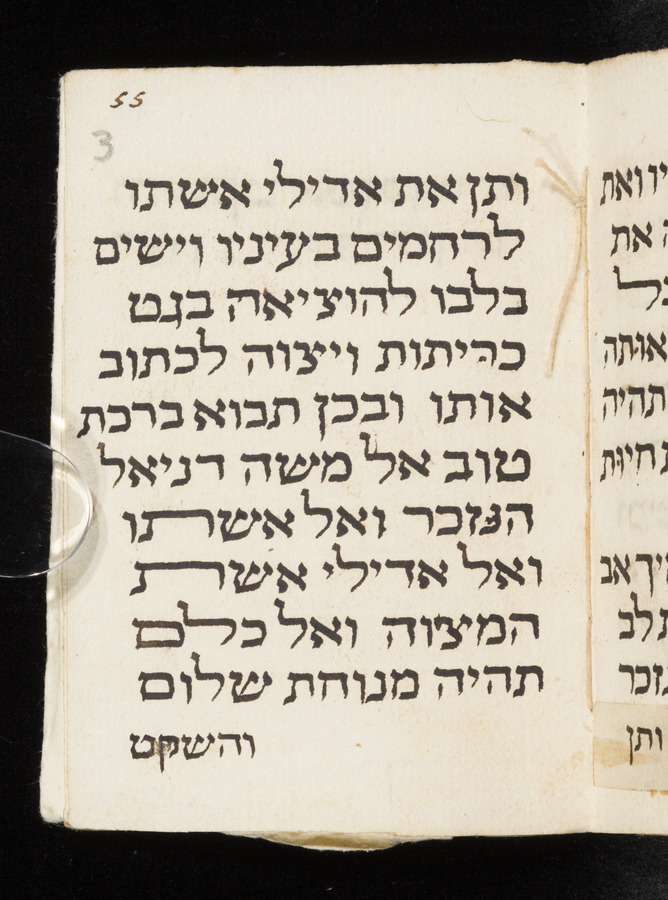 55
3
ותן את אדילי אשתו
לרחמים בעיניו וישים
בלבו להוציאה בגט
כריתות ויצוה לכתוב
אותו ובכן תבוא ברכת
טוב אל משה דניאל
הנזכר ואל אשרתו
ואל אדילי אשרת
המצוה ואל כלם
תהיה מנוחת שלום
והשקט
יו ואת
את
אותה
תהיה
חיות
יך אב
לב
זכר
ותן